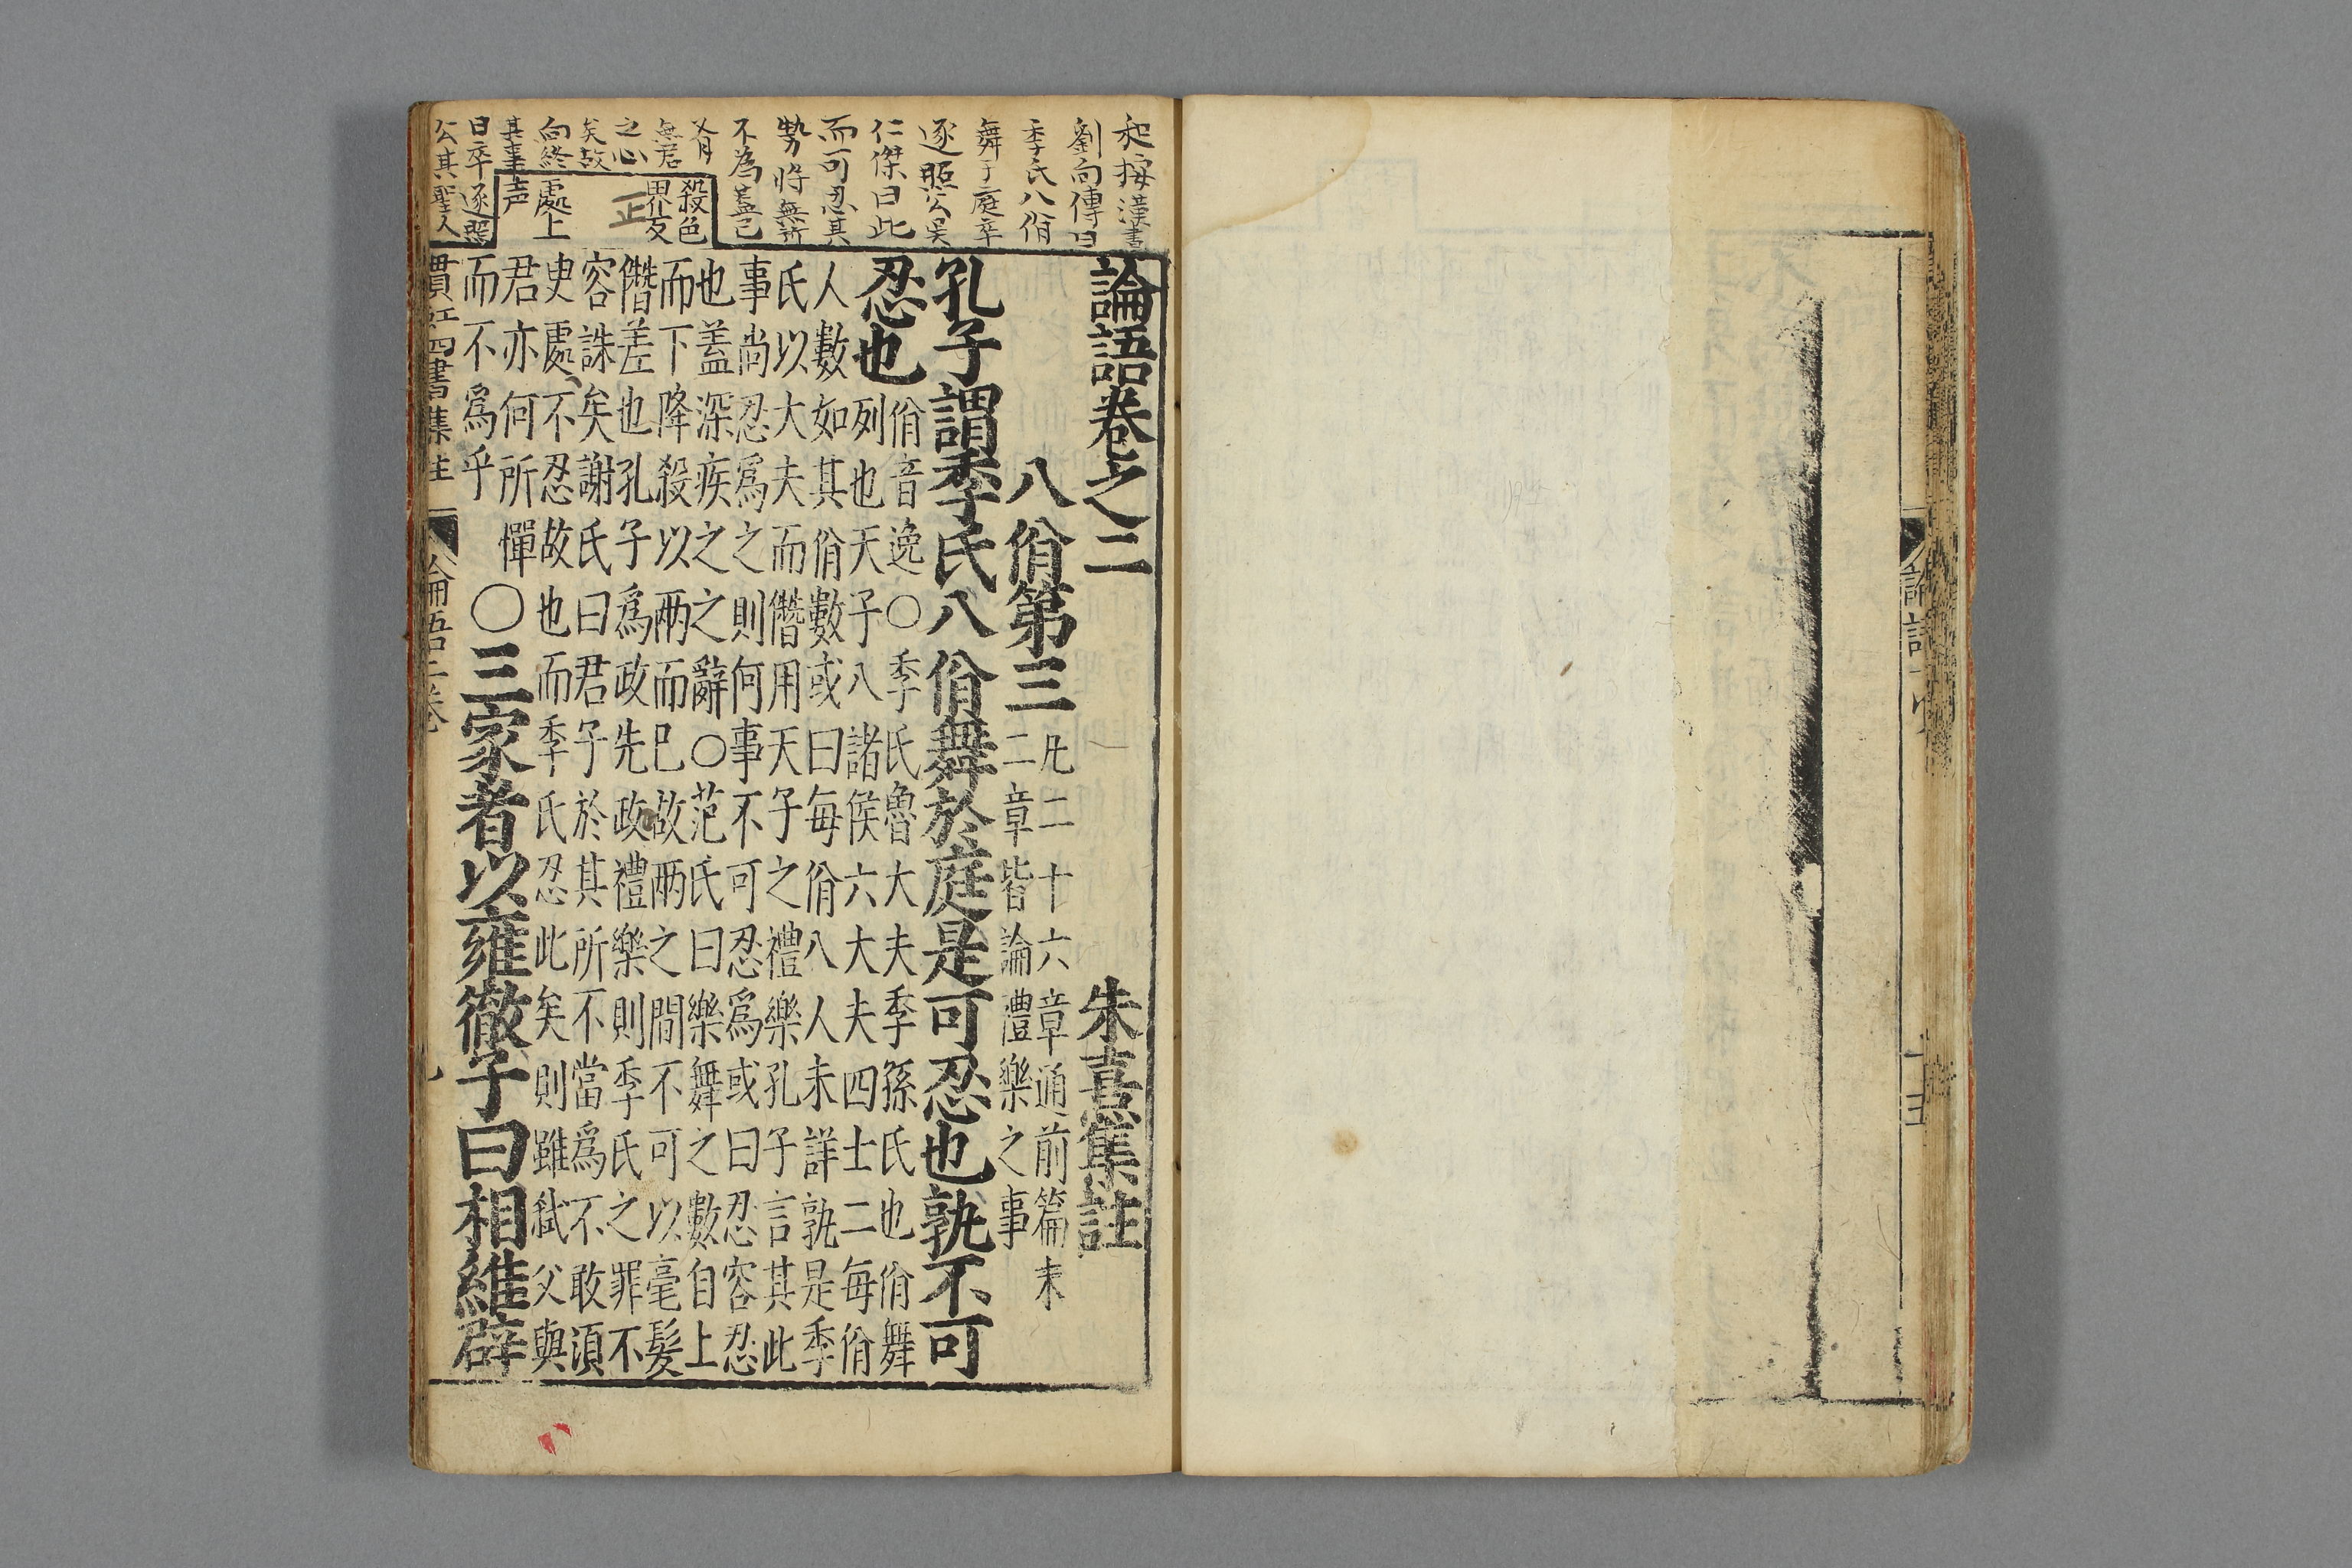 論語卷之二
朱熹集註
八佾第三
凡二十六章通前篇末
二章皆論禮樂之事
孔子謂季氏八佾舞於庭是可忍也孰不可
忍也
佾音逸○季氏魯大夫季孫氏也佾舞
列也天子八諸侯六大夫四士二每佾
人數如其佾數或曰每佾八人未詳孰是季
氏以大夫而僭用天子之禮樂孔子言其此
事尚忍爲之則何事不可忍爲或曰忍容忍
也蓋深疾之之辭○范氏曰樂舞之數自上
而下降殺以兩而已故兩之間不可以毫髮
僭差也孔子爲政先政禮樂則季氏之罪不
容誅矣謝氏曰君子於其所不當爲不敢須
史處不忍故也而季氏忍此矣則雖弒父與
君亦何所憚
而不爲乎
○三家者以雍徹子曰相維辟
和按漢書
劉向傳曰
季氏八佾
舞于庭卒
逐昭公吳
仁傑曰此
而可忍其
勢將無所
不為蓋已
有
無君
之心
矣故
向終
其事
曰卒逐昭
公其聖人
殺色
界反
正
處上
声
貫江四書集註
論語二卷